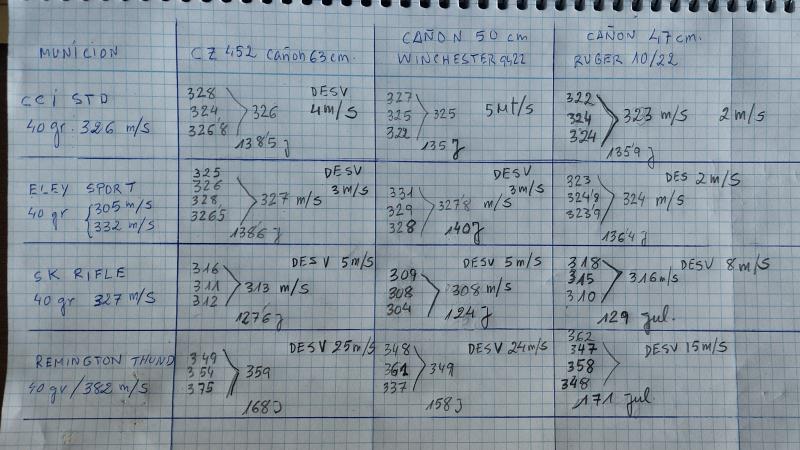 MUNICION
CZ 452 cañon 63 cm.
CAÑON 50 cm
WINCHESTER 9422
CAÑON 47 cm.
RUGER 10/22
CCI STD
40 gr. 326 m/s
328
324
326'8
326
DESV
4 m/s
138'5 j
327
325
322
325
5 Mt/s
135 j
322
324
324
323 m/s
2 m/s
135'9 j
ELEY SPORT
40 gr
305 m/s
332 m/s
325
326
328
326'5
327 m/s
DESV
3 m/s
138'6 j
331
329
328
327'8 m/s
DESV
3 m/s
140 J
323
324'8
323'9
324 m/s
DES 2 m/s
136'4 j
SK RIFLE
40 gr 327 m/s
316
311
312
313 m/s
DESV 5 m/s
127'6 j
309
308
304
308 m/s
DESV 5 m/s
124 j
318
315
310
316 m/s
DESV 8 m/s
129 jul.
REMINGTON THUND
40 gr / 382 m/s
349
354
375
359
DESV 25 m/s
168 J
348
361
337
349
DESV 24 m/s
158 J
362
347
358
348
DESV 15 m/s
171 jul.